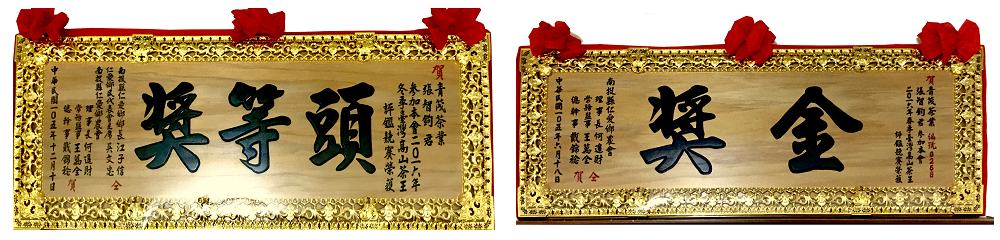 賀
青茂茶業
張智鈞 君
參加本會二〇一六年
冬季臺灣高山茶王
評鑑競賽榮獲
頭等獎
南投縣仁愛鄉鄉長 江子信
仁愛鄉民代表會主席 吳文忠
南投縣仁愛鄉農會
理事長 何進財
常務監事 王萬全
總幹事 戴錦松
仝
賀
中華民國一〇五年十二月十日
賀
青茂茶業
張智鈞君 參加本會
二〇一六年春季臺灣高山茶王
評鑑競賽榮獲
金獎
南投縣仁愛鄉農會
理事長 何進財
常務監事 王萬全
總幹事 戴錦松
仝
賀
中華民國一〇五年六月十八日